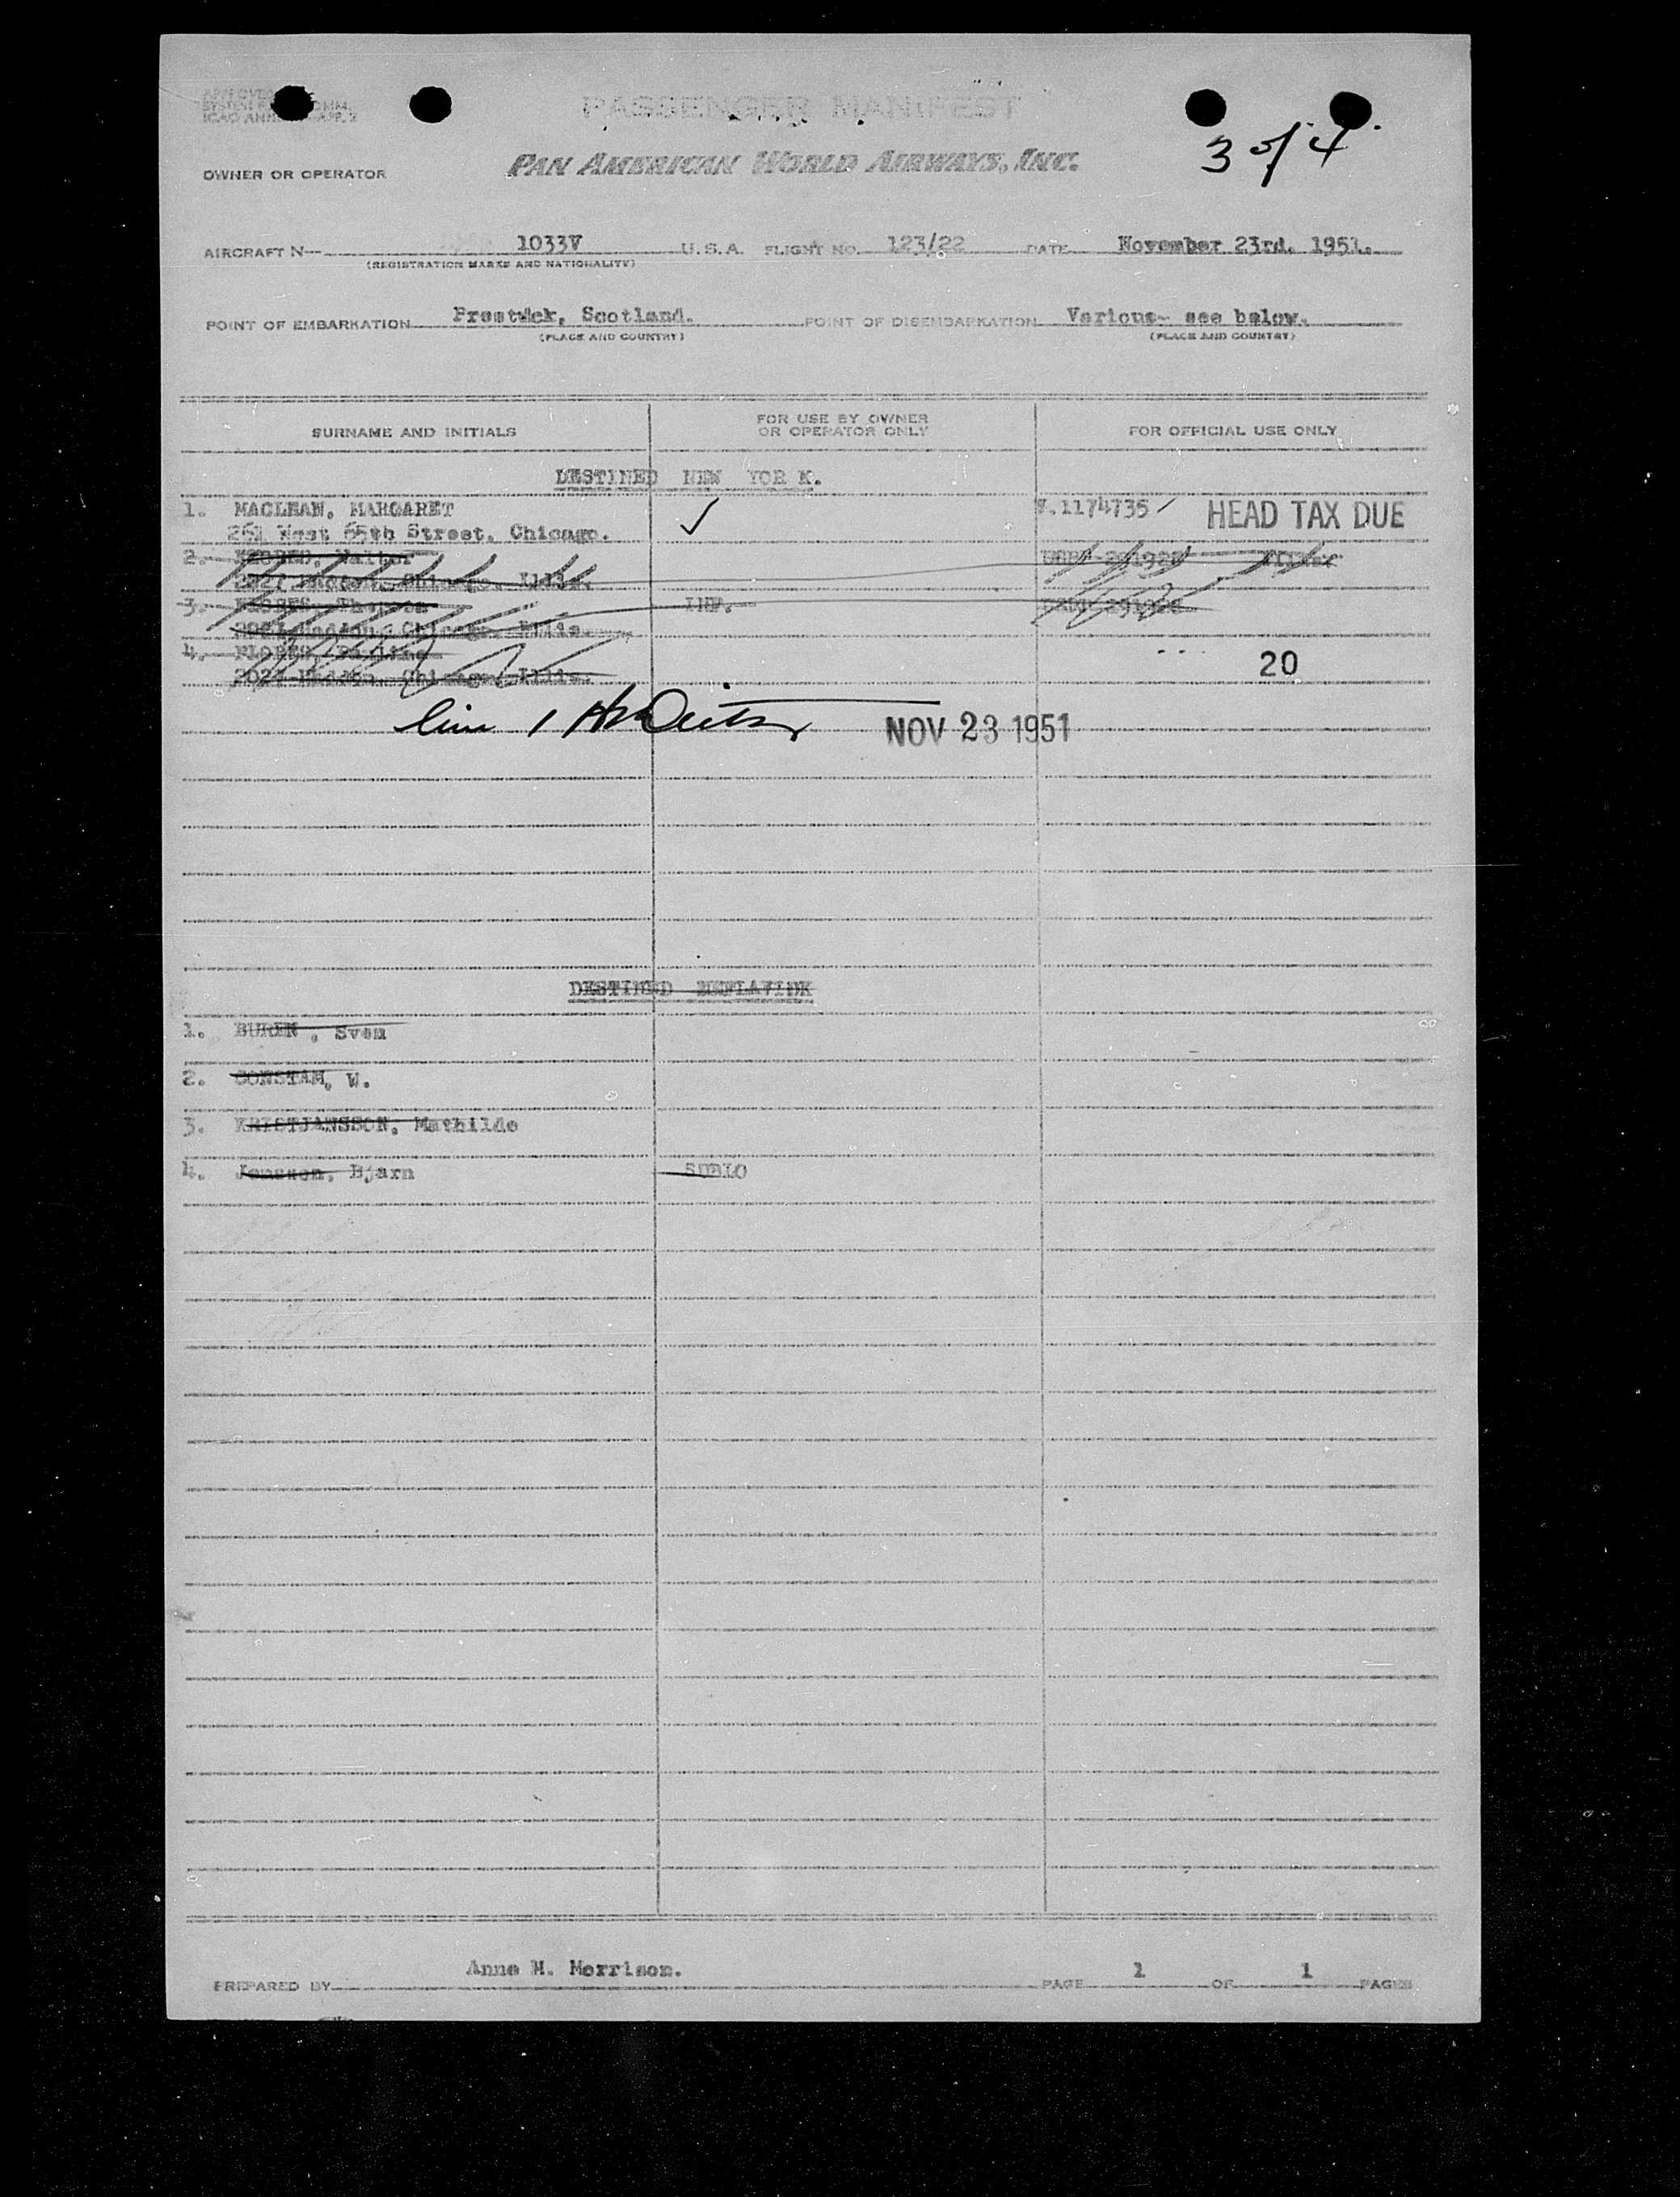 PASSENGER MANIFEST
3 of 4
OWNER OR OPERATOR PAN AMERICAN WORLD AIRWAYS, INC.
AIRCRAFT N— 1033V U.S.A. FLIGHT NO. 123/22 DATE November 23rd. 1951.
(REGISTRATION MARKS AND NATIONALITY)
POINT OF EMBARKATION Prestwick, Scotland. POINT OF DISEMBARKATION Various- see below.
(PLACE AND COUNTRY) (PLACE AND COUNTRY)
SURNAME AND INITIALS FOR USE BY OWNER OR OPERATOR ONLY FOR OFFICIAL USE ONLY
DESTINED NEW YOR K.
1. MACLEAN, MARGARET V.1174735 HEAD TAX DUE
261 West 65th Street, Chicago.
2. Walter
Chicago, Illis.
3. INF.
Chicago, Illis.
4. FLORES,
Chicago, Illis. 20
line 1 NOV 23 1951
DESTINED KEFLAVIK
1. BUREN, Sven
2. CONSTAM, W.
3. KRISTJANSSON, Mathilde
4. Jonsson, Bjarn SUBLO
PREPARED BY Anne M. Morrison. PAGE 1 OF 1 PAGES